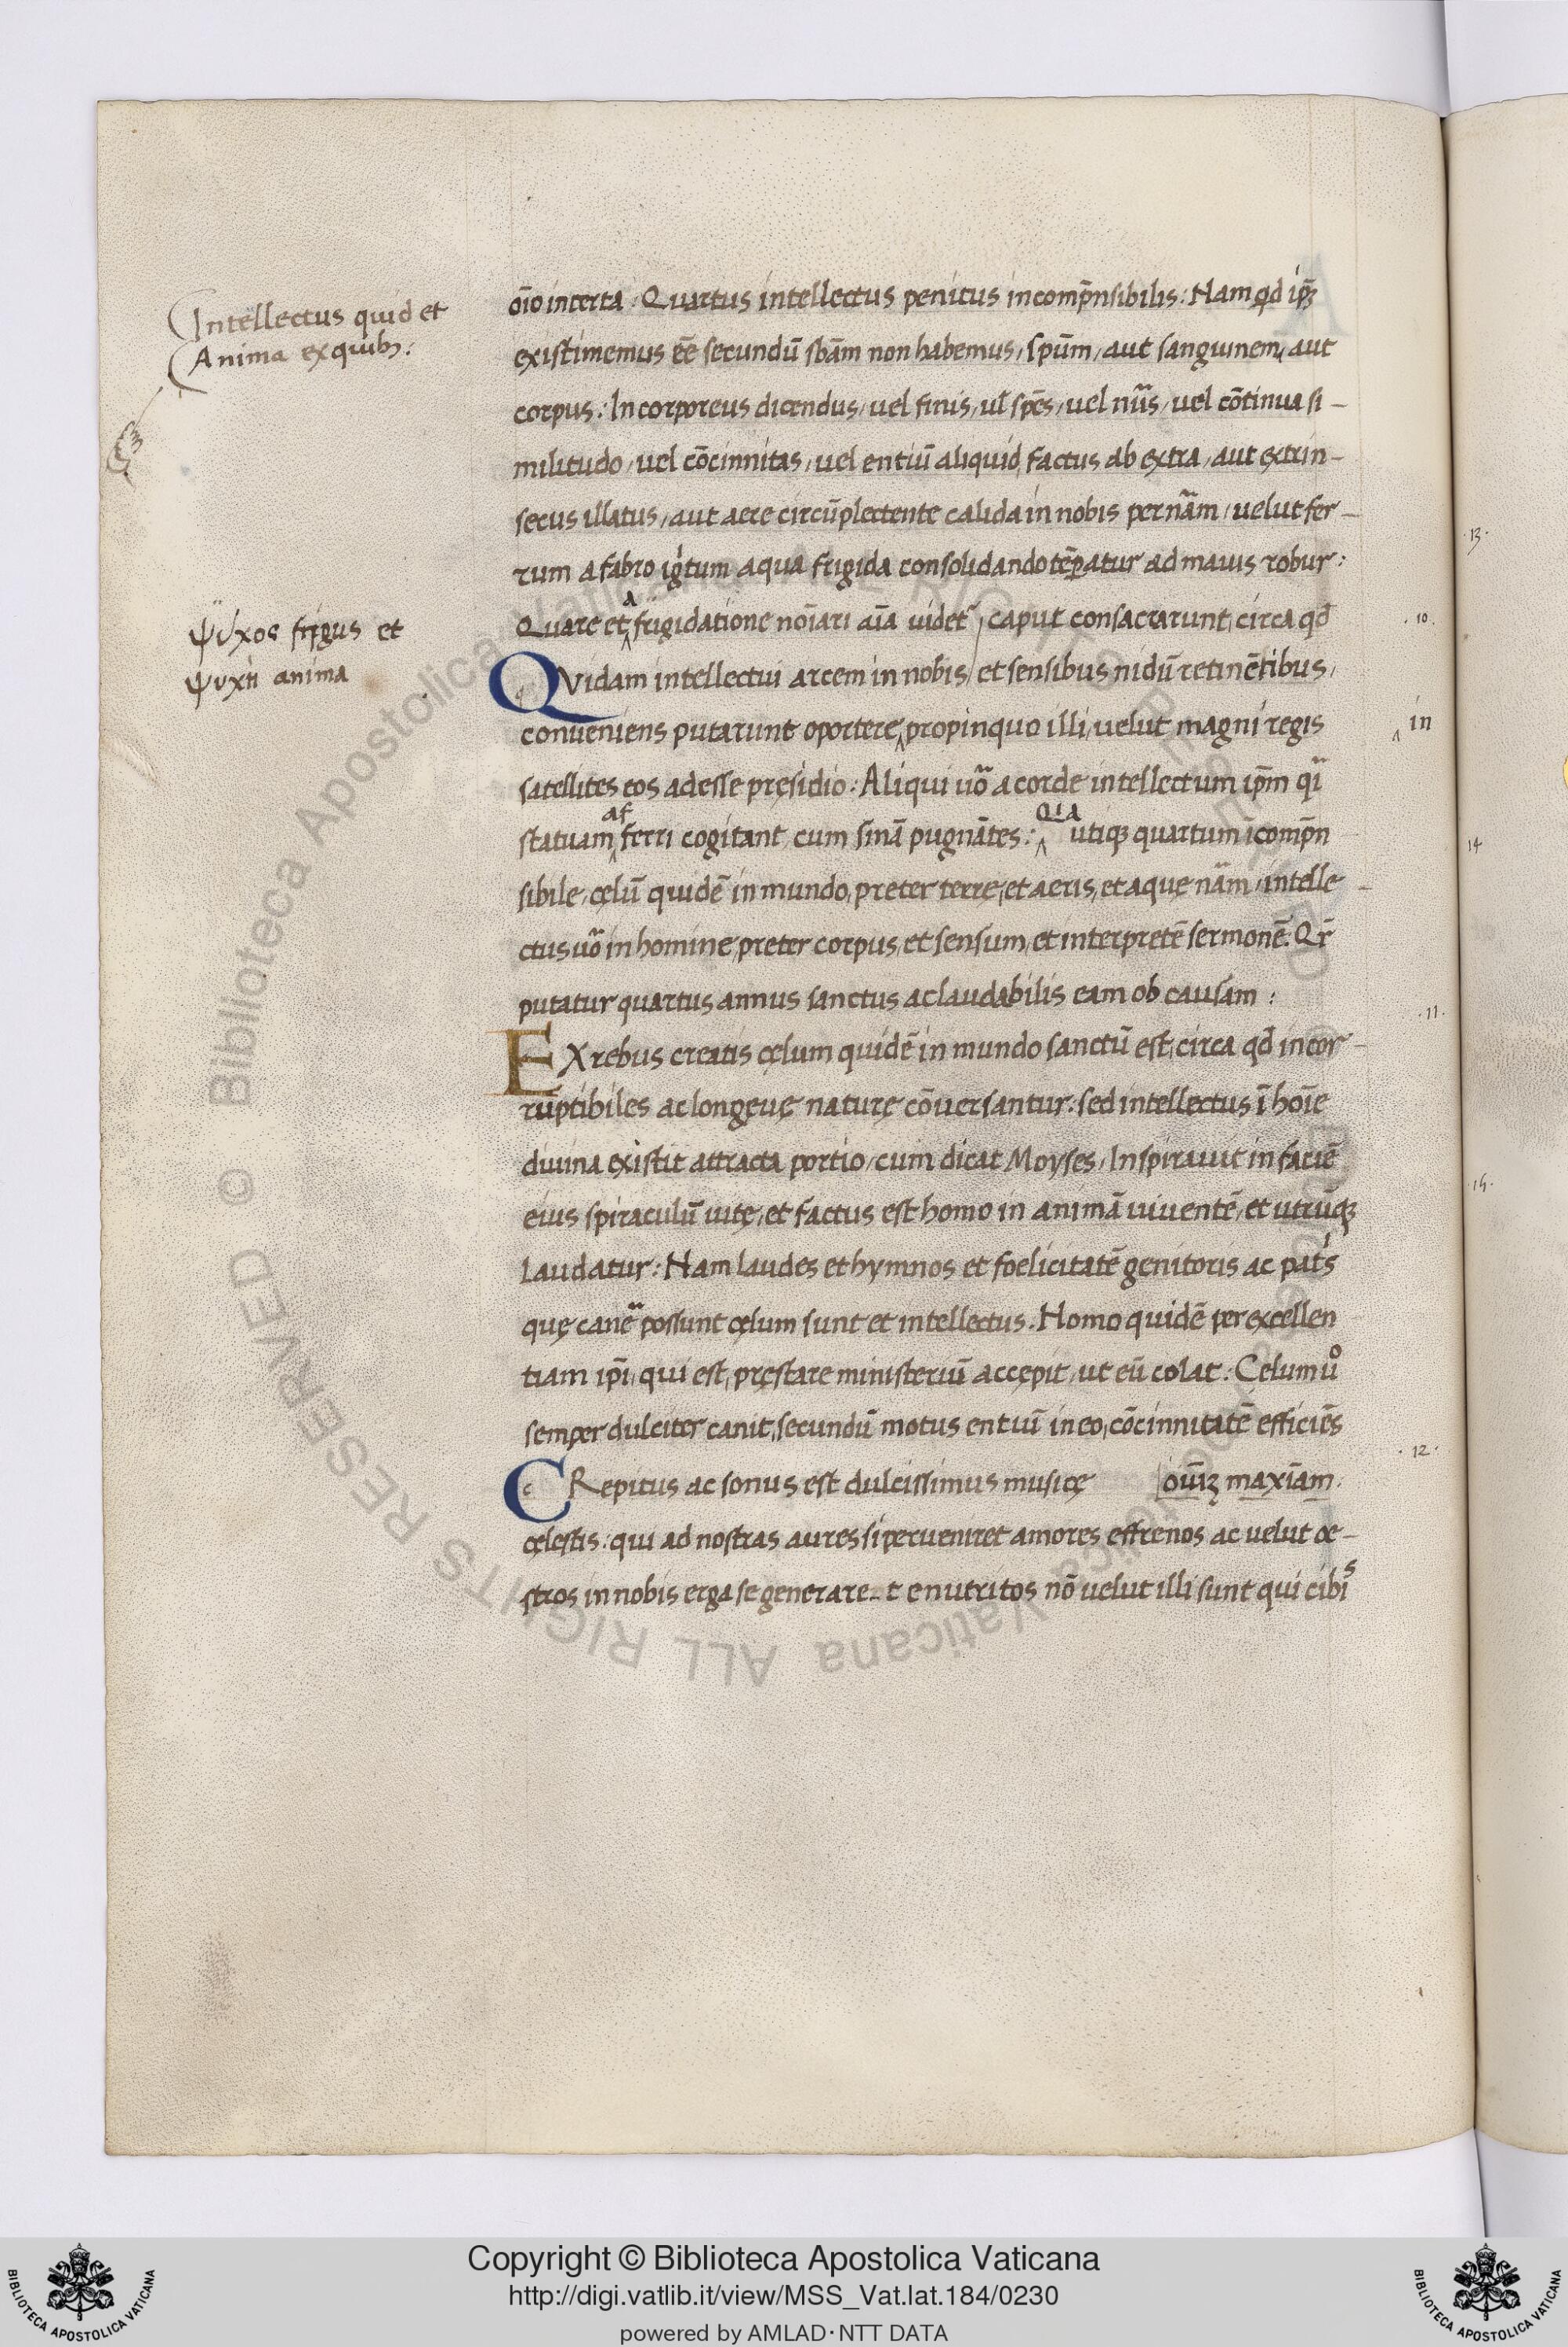 Intellectus quid et
Anima ex quibꝫ:
ψύχος frigus et
ψυχὴ anima
oīo incerta: Quartus intellectus penitus incomp̄nsibilis: Nam qd ip̄ꝫ
existimemus eē̄ secundū sbām non habemus, spūm, aut sanguinem, aut
corpus: Incorporeus dicendus, uel finis, ul spēs, uel nūs, uel cōtinua si-
militudo, uel cōcinnitas, uel entiū aliquid, factus ab extra, aut extrin-
secus illatus, aut aere circūplectente calida in nobis per nām, uelut fer-
rum a fabro igītum aqua frigida consolidando tēꝑatur ad maius robur:
Quare et a frigidatione noīari aīa uidet, caput consacrarunt, circa qd
10.
Quidam intellectui arcem in nobis, et sensibus nidū retinētibus,
conueniens putarunt oportere, propinquo illi, uelut magni regis
in
satellites eos adesse pręsidio: Aliqui uō a corde intellectum ip̄m qi
statuam af ferri cogitant, cum sinā pugnātes: QIA utiqꝫ quartum īcomp̄n
sibile, cęlū quidē in mundo, preter terre, et aeris, et aquę nām, intelle-
ctus uō in homine, preter corpus, et sensum, et interpretē sermonē: Qr̄
putatur quartus annus sanctus ac laudabilis eam ob causam:
11.
EX rebus creatis cęlum quidē in mundo sanctū est, circa qd incor-
ruptibiles ac longęuę naturę cōuersantur: sed intellectus ī hoīe
diuina existit attracta portio, cum dicat Moyses, Inspirauit in faciē
eius spiraculū uitę, et factus est homo in animā uiuentē, et utrūqꝫ
laudatur: Nam laudes et hymnos et foelicitatē genitoris ac pat's
quę canē possunt cęlum sunt et intellectus. Homo quidē per excellen
tiam ip̄i, qui est, pręstare ministeriū accępit, ut eū colat: Cęlum uͦ
semper dulciter canit, secundū motus entiū in eo, cōcinnitatē efficiēs
12.
CRepitus ac sonus est dulcissimus musicę oūiꝫ maxīam.
cęlestis: qui ad nostras aures si perueniret amores effrenos ac uelut oe-
stros in nobis erga se generare-t enutritos nō uelut illi sunt qui cibis
13.
14
15.
Copyright © Biblioteca Apostolica Vaticana
http://digi.vatlib.it/view/MSS_Vat.lat.184/0230
powered by AMLAD·NTT DATA
BIBLIOTECA APOSTOLICA VATICANA
BIBLIOTECA APOSTOLICA VATICANA
© Biblioteca Apostolica Vaticana ALL RIGHTS RESERVED